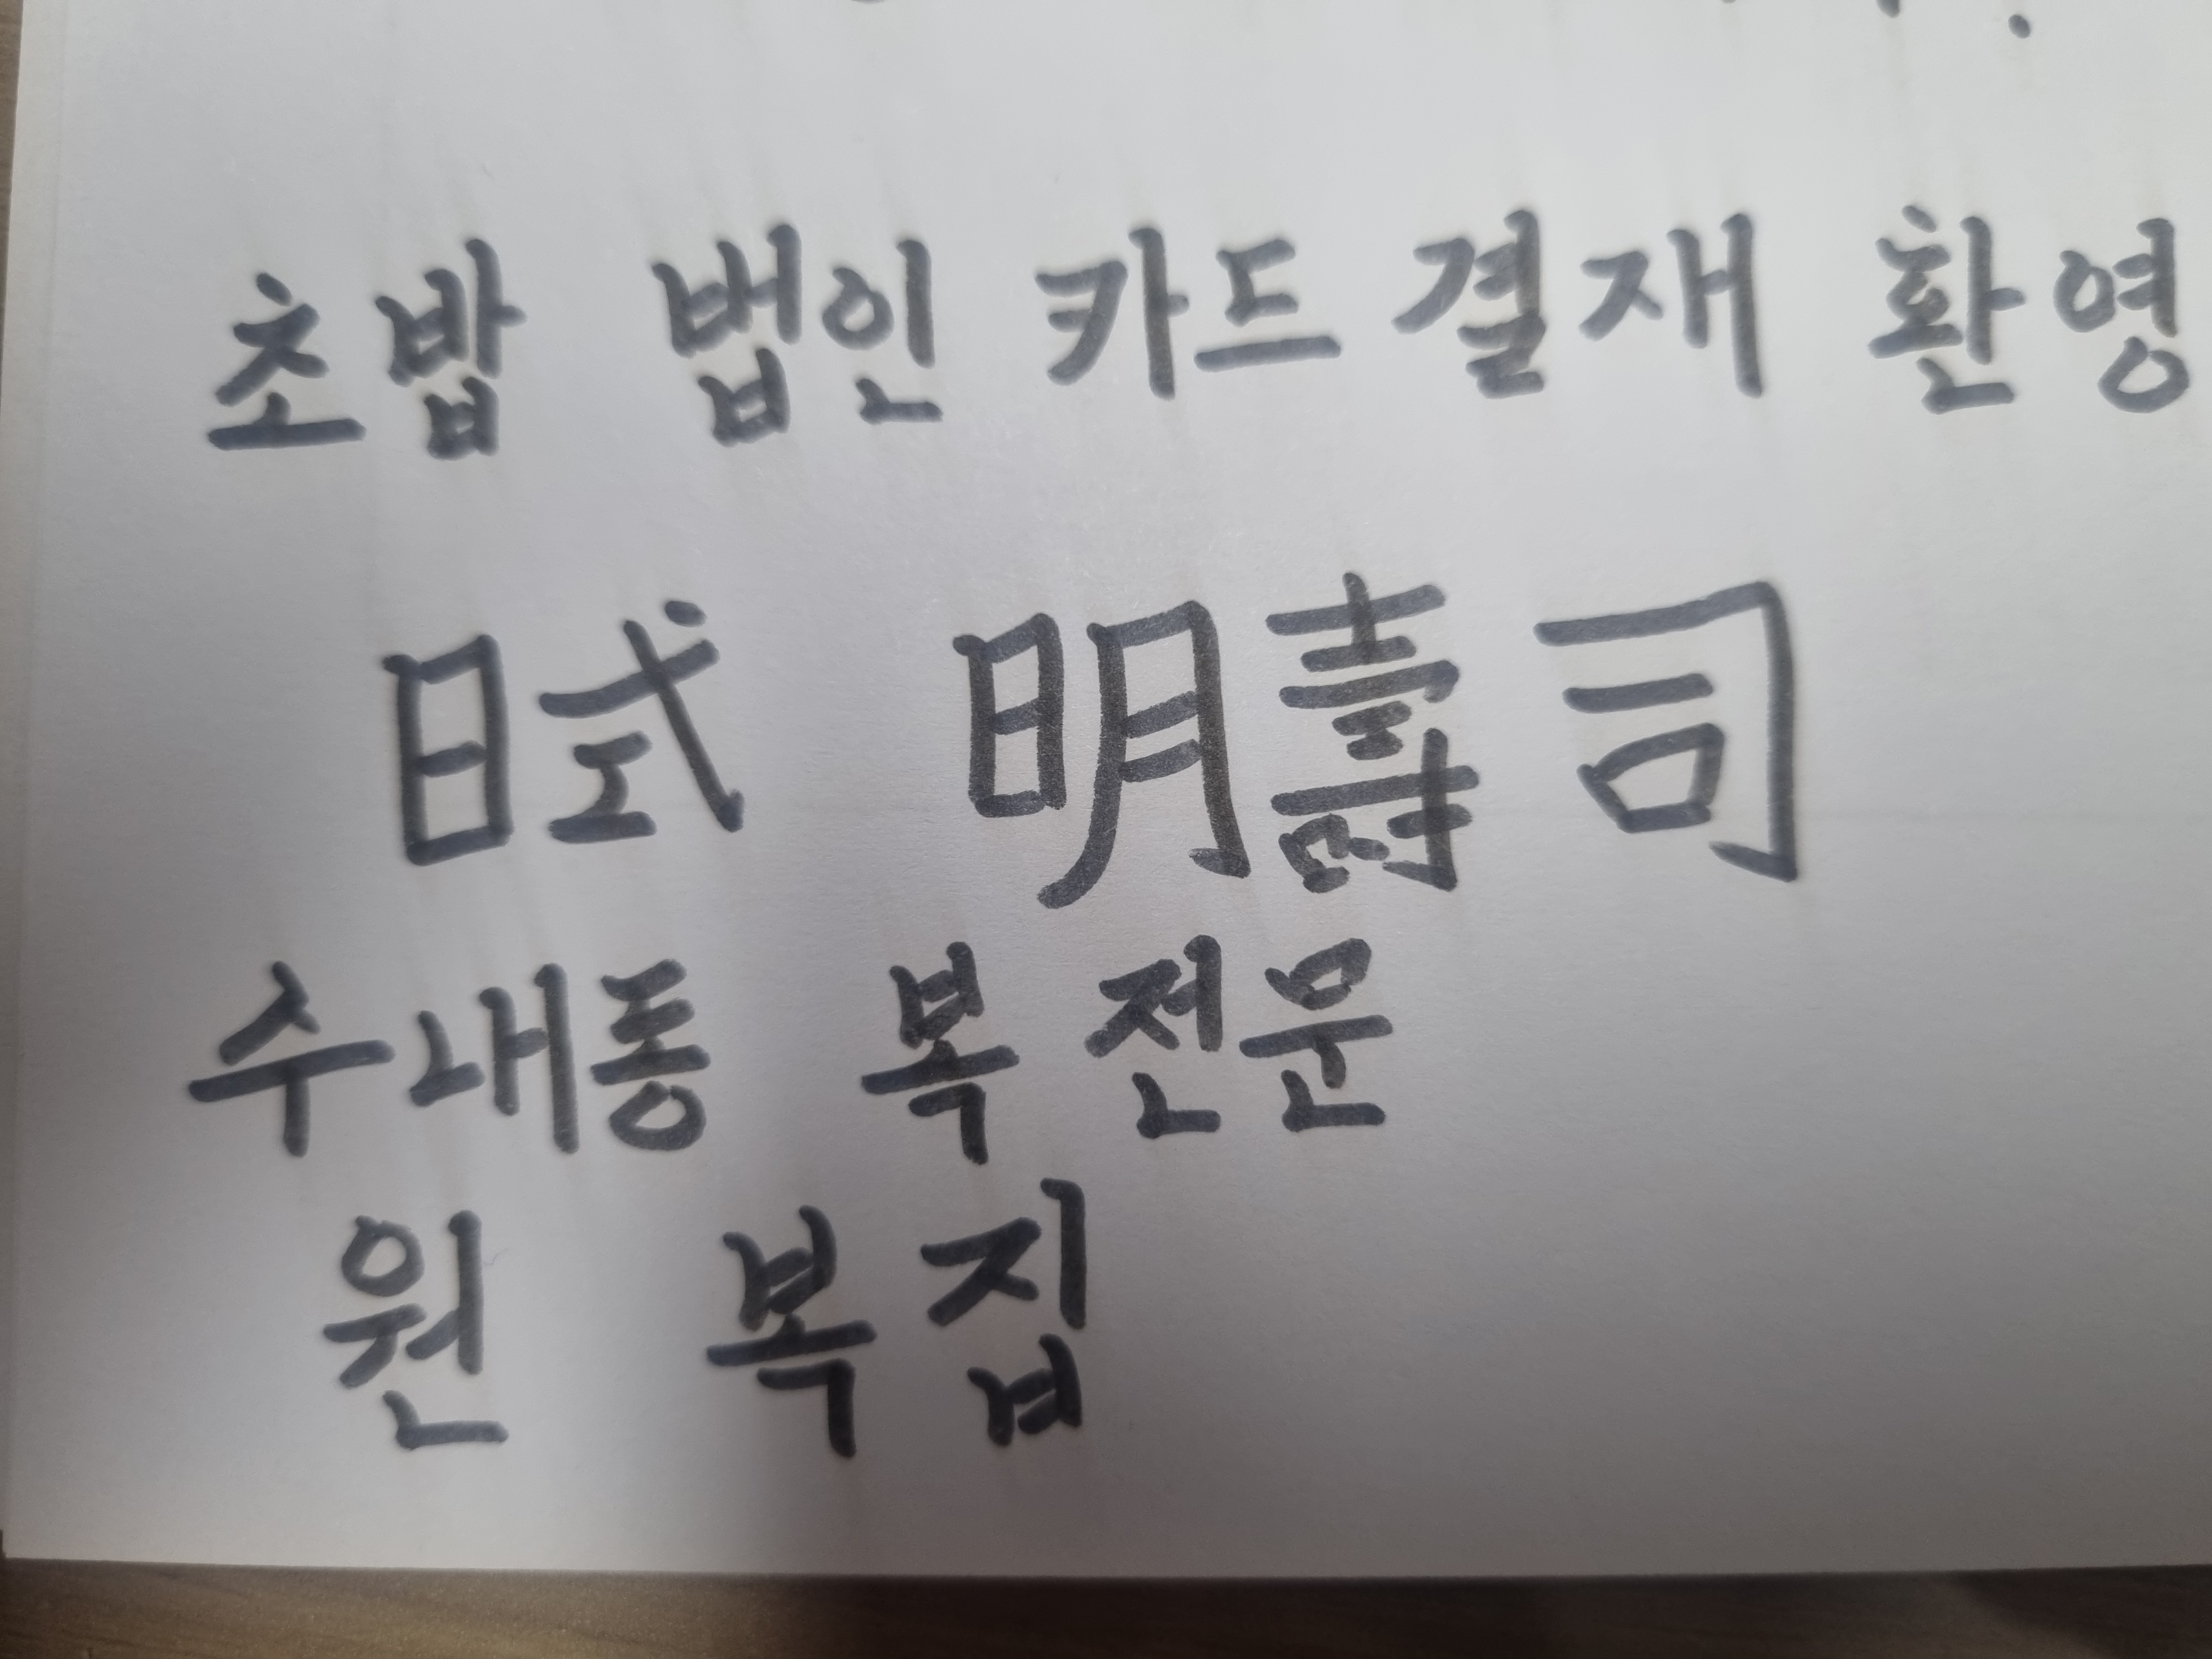 초밥 법인 카드 결재 환영
日式 明壽司
수내동 복 전문
원 복집